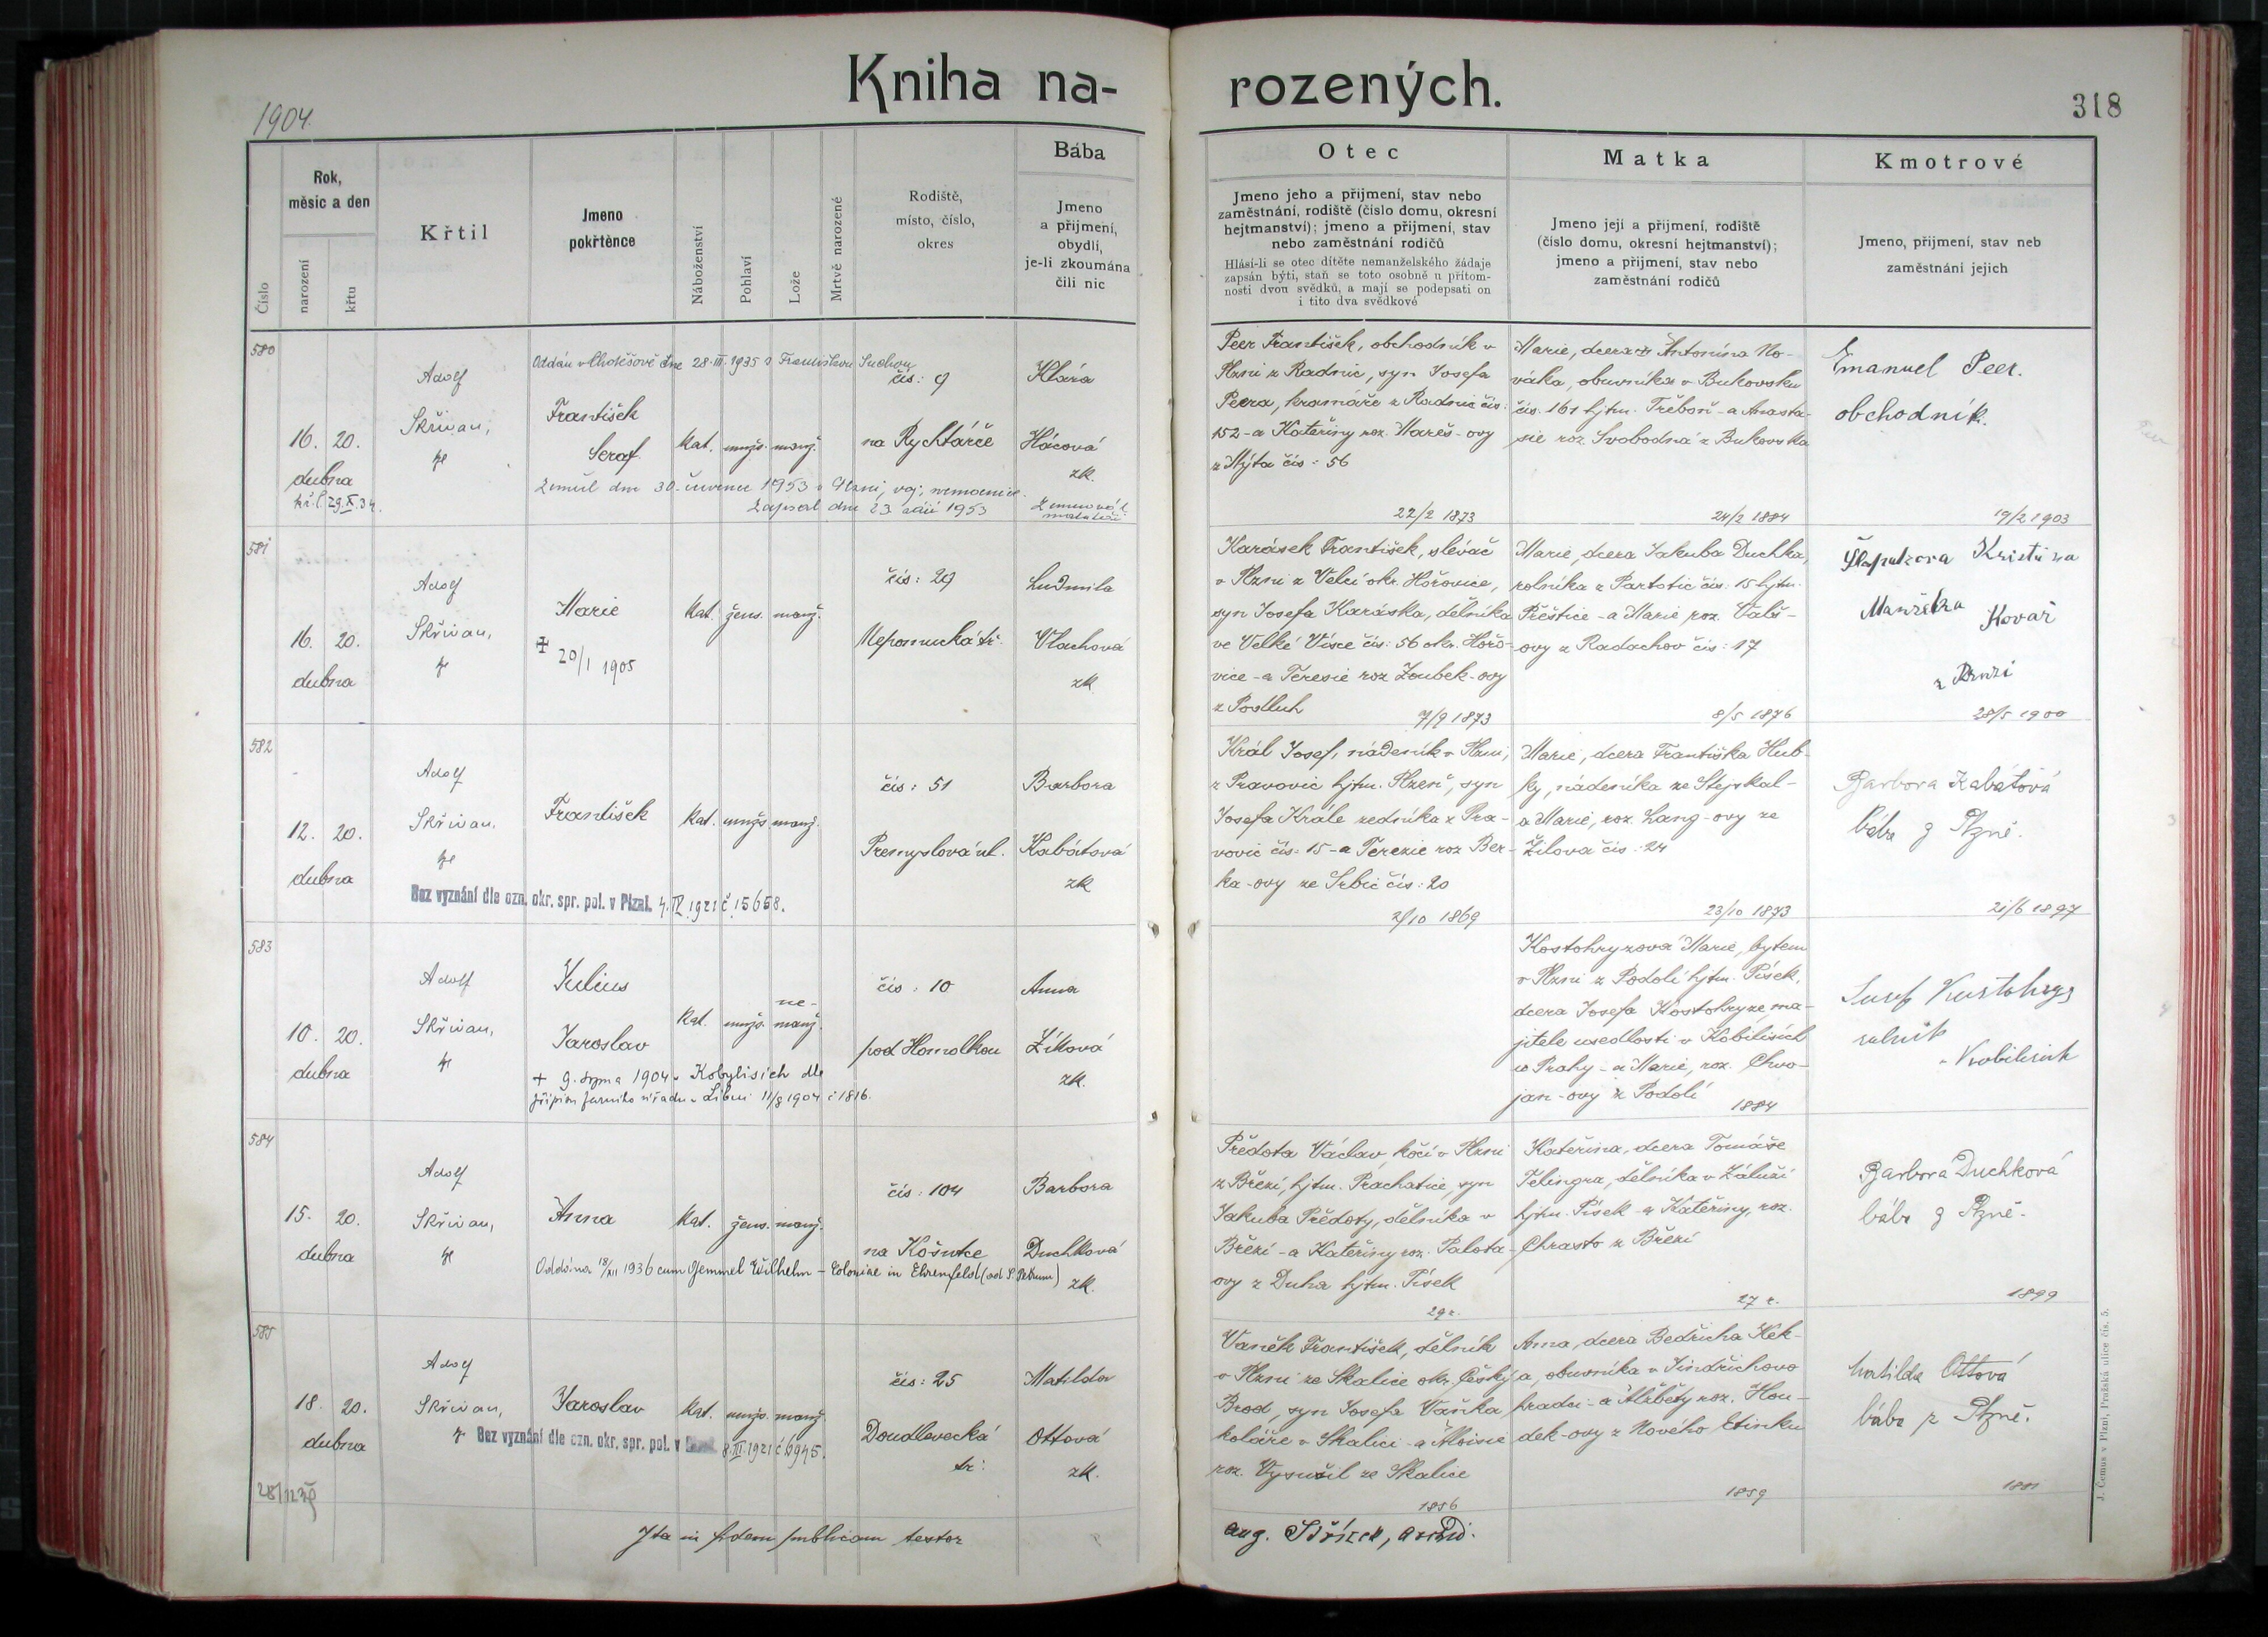 Kniha na-
rozených.
1904.
318
Číslo
Rok,
měsíc a den
narození
křtu
Křtil
Jmeno
pokřtěnce
Náboženství
Pohlaví
Lože
Mrtvě narozené
Rodiště,
místo, číslo,
okres
Bába
Jmeno
a přijmení,
obydlí,
je-li zkoumána
čili nic
Otec
Jmeno jeho a přijmení, stav nebo
zaměstnání, rodiště (číslo domu, okresní
hejtmanství); jmeno a přijmení, stav
nebo zaměstnání rodičů
Hlásí-li se otec dítěte nemanželského žádaje
zapsán býti, staň se toto osobně u přítom-
nosti dvou svědků, a mají se podepsati on
i tito dva svědkové
Matka
Jmeno její a přijmení, rodiště
(číslo domu, okresní hejtmanství);
jmeno a přijmení, stav nebo
zaměstnání rodičů
Kmotrové
Jmeno, přijmení, stav neb
zaměstnání jejich
580
16. 20.
dubna
Adolf
Skřivan,
Oddán v Chotěšově dne 28.III.1935 s Františkou Suchou
František
Seraf.
kat. mužs. manž.
čís: 9
na Rychtářce
Klára
Hácová
zk.
Zemřel dne 30. července 1953 v Plzni, voj. nemocnice.
Zapsal dne 23. září 1953
Peer František, obchodník v
Plzni z Radnic, syn Josefa
Peera, kramáře z Radnic čís:
152 - a Kateřiny roz. Mareš-ovy
z Mýta čís: 56
22/2 1873
Marie, dcera Antonína No-
váka, obuvníka v Bukovsku
čís. 161 hjtm. Třeboň - a Anasta-
sie roz. Svobodná z Bukovska
24/2 1884
Emanuel Peer.
obchodník.
19/2 1903
581
16. 20.
dubna
Adolf
Skřivan,
Marie
20/1 1905
kat. žens. manž.
čís: 29
Nepomucká tř.
Ludmila
Vlachová
zk.
Karásek František, slévač
v Plzni z Velcí okr. Hořovice,
syn Josefa Karáska, dělníka
ve Velké Vísce čís: 56 okr. Hořo-
vice - a Teresie roz Zoubek-ovy
z Podluh
7/9 1873
Marie, dcera Jakuba Duchka,
rolníka z Partotic čís. 15 hjtm.
Přeštice - a Marie roz. Valš-
ovy z Radachov čís: 17
8/5 1876
Kristina
Manželka Kovář
28/5 1900
582
12. 20.
dubna
Adolf
Skřivan.
František
kat. mužs. manž.
čís: 51
Přemyslová ul.
Barbora
Kabátová
zk
Bez vyznání dle ozn. okr. spr. pol. v Plzni. 4.IV.1921 č.15658.
Král Josef, nádeník v Plzni,
z Pravovic hjtm. Plzeň, syn
Josefa Krále zedníka z Pra-
vovic čís: 15 - a Terezie roz Ber-
ka-ovy ze Srbic čís: 20
2/10 1869
Marie, dcera Františka Hub-
ky, nádeníka ze Stejskal-
a Marie, roz. Lang-ovy ze
Žilova čís: 24
23/10 1873
Barbora Kabátová
bába z Plzně.
21/6 1897
583
10. 20.
dubna
Adolf
Skřivan,
Julius
Jaroslav
kat. mužs. ne-
manž.
čís: 10
pod Homolkou
Anna
Žíková
zk.
+ 9. srpna 1904 v Kobylisích dle
přípisu farního úřadu v Libni 11/8 1904 č 1816.
Kostohryzová Marie, bytem
v Plzni z Podolí hjtm. Písek,
dcera Josefa Kostohryze, ma-
jitele usedlosti v Kobilisích
u Prahy - a Marie, roz. Chvo-
jan-ovy z Podolí
1884
Josef Kostohryz
rolník
v Kobilisích
584
15. 20.
dubna
Adolf
Skřivan,
Anna
kat. žens. manž.
čís: 104
na Košutce
Barbora
Duchková
zk.
Oddána 18/XII 1936 cum Gemmel Wilhelm - Coloniae in Ehrenfeld (ad S. Petrum)
Předota Václav, kočí v Plzni
z Březí, hjtm. Prachatice, syn
Jakuba Předoty, dělníka v
Březí - a Kateřiny roz. Palota-
ovy z Duha hjtm. Písek
29 r.
Kateřina, dcera Tomáše
Felingra, dělníka v Záluží
hjtm. Písek - a Kateřiny, roz.
Chrasto z Březí
27 r.
Barbora Duchková
bába z Plzně.
1899
585
18. 20.
dubna
Adolf
Skřivan,
Jaroslav
kat. mužs. manž.
čís: 25
Doudlevecká
tř:
Matilda
Ottová
zk.
Bez vyznání dle ozn. okr. spr. pol. v
Vaněk František, dělník
v Plzni ze Skalice okr. Český
Brod, syn Josefa Vaňka
koláře v Skalici - a Aloisie
roz. Vysušil ze Skalice
1856
Anna, dcera Bedřicha Kek-
a, obuvníka v Jindřichovo
hradci - a Alžběty roz. Hou-
dek-ovy z Nového Etinku
1859
Matilda Ottová
bába z Plzně.
1881
Ita in fidem publicam testor
J. Čemus v Plzni, Pražská ulice čís. 5.